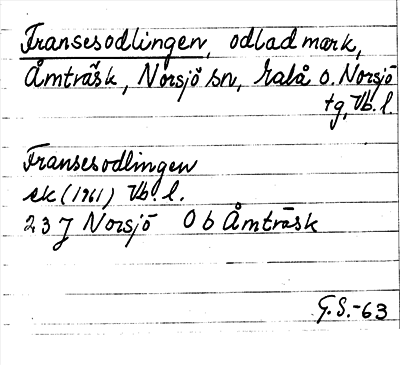 Fransesodlingen, odlad mark,
Åmträsk, Norsjö sn, Malå o. Norsjö
tg, Vb. l.
Fransesodlingen
ek (1961) Vb. l.
23 J Norsjö 0 b Åmträsk
G.S.-63